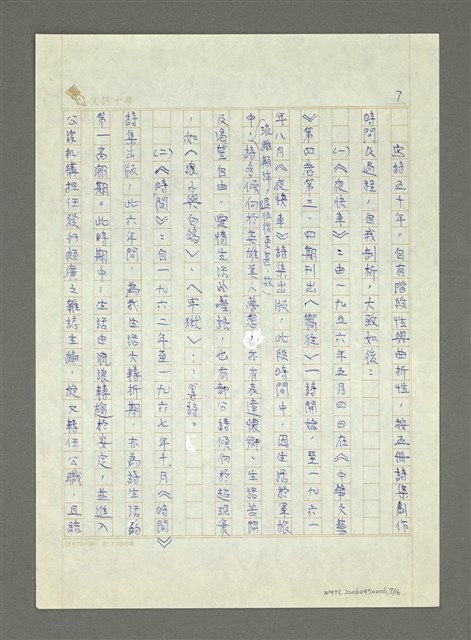 7
文訊十年
寫詩五十年，自有階段性與曲折性，按五冊詩集創作
時間及過程，自我剖析，大致如後：
㈠《夜快車》：由一九五六年五月四日在《中華文藝
》第四卷第三、四期刊出〈嚮往〉一詩開始，至一九六一
年八月《夜快車》詩集出版，此段時間中，因生活於軍旅
中，詩多傾向於英雄美人夢想，亦有表達懷鄉、生活苦悶
及渴望自由、愛情生活的囈語，也有部分詩傾向於超現實
，如〈浪子與白鴿〉、〈牢獄〉……等詩。
㈡《時間》：自一九六二年至一九六七年十月《時間》
詩集出版，此六年間，為我生活大轉折期，亦為詩生活的
第一高潮期。此時期中，生活由流浪轉趨於安定，並進入
公家機構擔任發行頗廣之雜誌主編，旋又轉任公職，且結
NMTL 20060470006,7/16